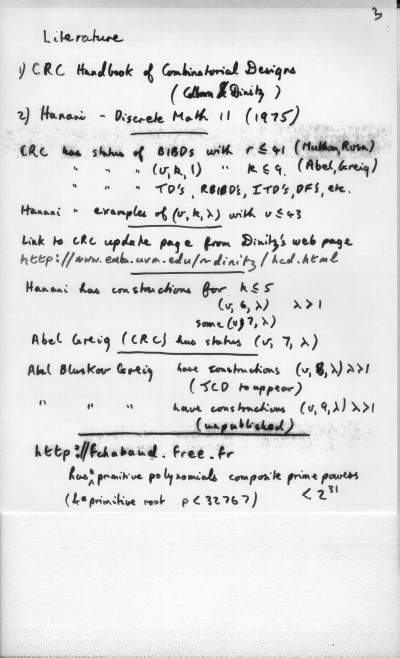 3
Literature
1) CRC Handbook of Combinatorial Designs
(Colbourn & Dinitz)
2) Hanani - Discrete Math 11 (1975)
CRC has status of BIBDs with r ≤ 41 (Mathon, Rosa)
" " " (v, k, 1) " k ≤ 9. (Abel, Greig)
" " " TD's, RBIBDs, ITD's, DFs, etc.
Hanani " examples of (v, k, λ) with v ≤ 43
Link to CRC update page from Dinitz's web page
http://www.emba.uvm.edu/~dinitz/hcd.html
Hanani has constructions for k ≤ 5
(v, 6, λ) λ > 1
some (v, 7, λ)
Abel Greig (CRC) has status (v, 7, λ)
Abel Bluskov Greig have constructions (v, 8, λ) λ > 1
(JCD to appear)
" " " have constructions (v, 9, λ) λ > 1
(unpublished)
http://fchabaud.free.fr
has a primitive polynomials composite prime powers
(& a primitive root p < 32767) < 2^31